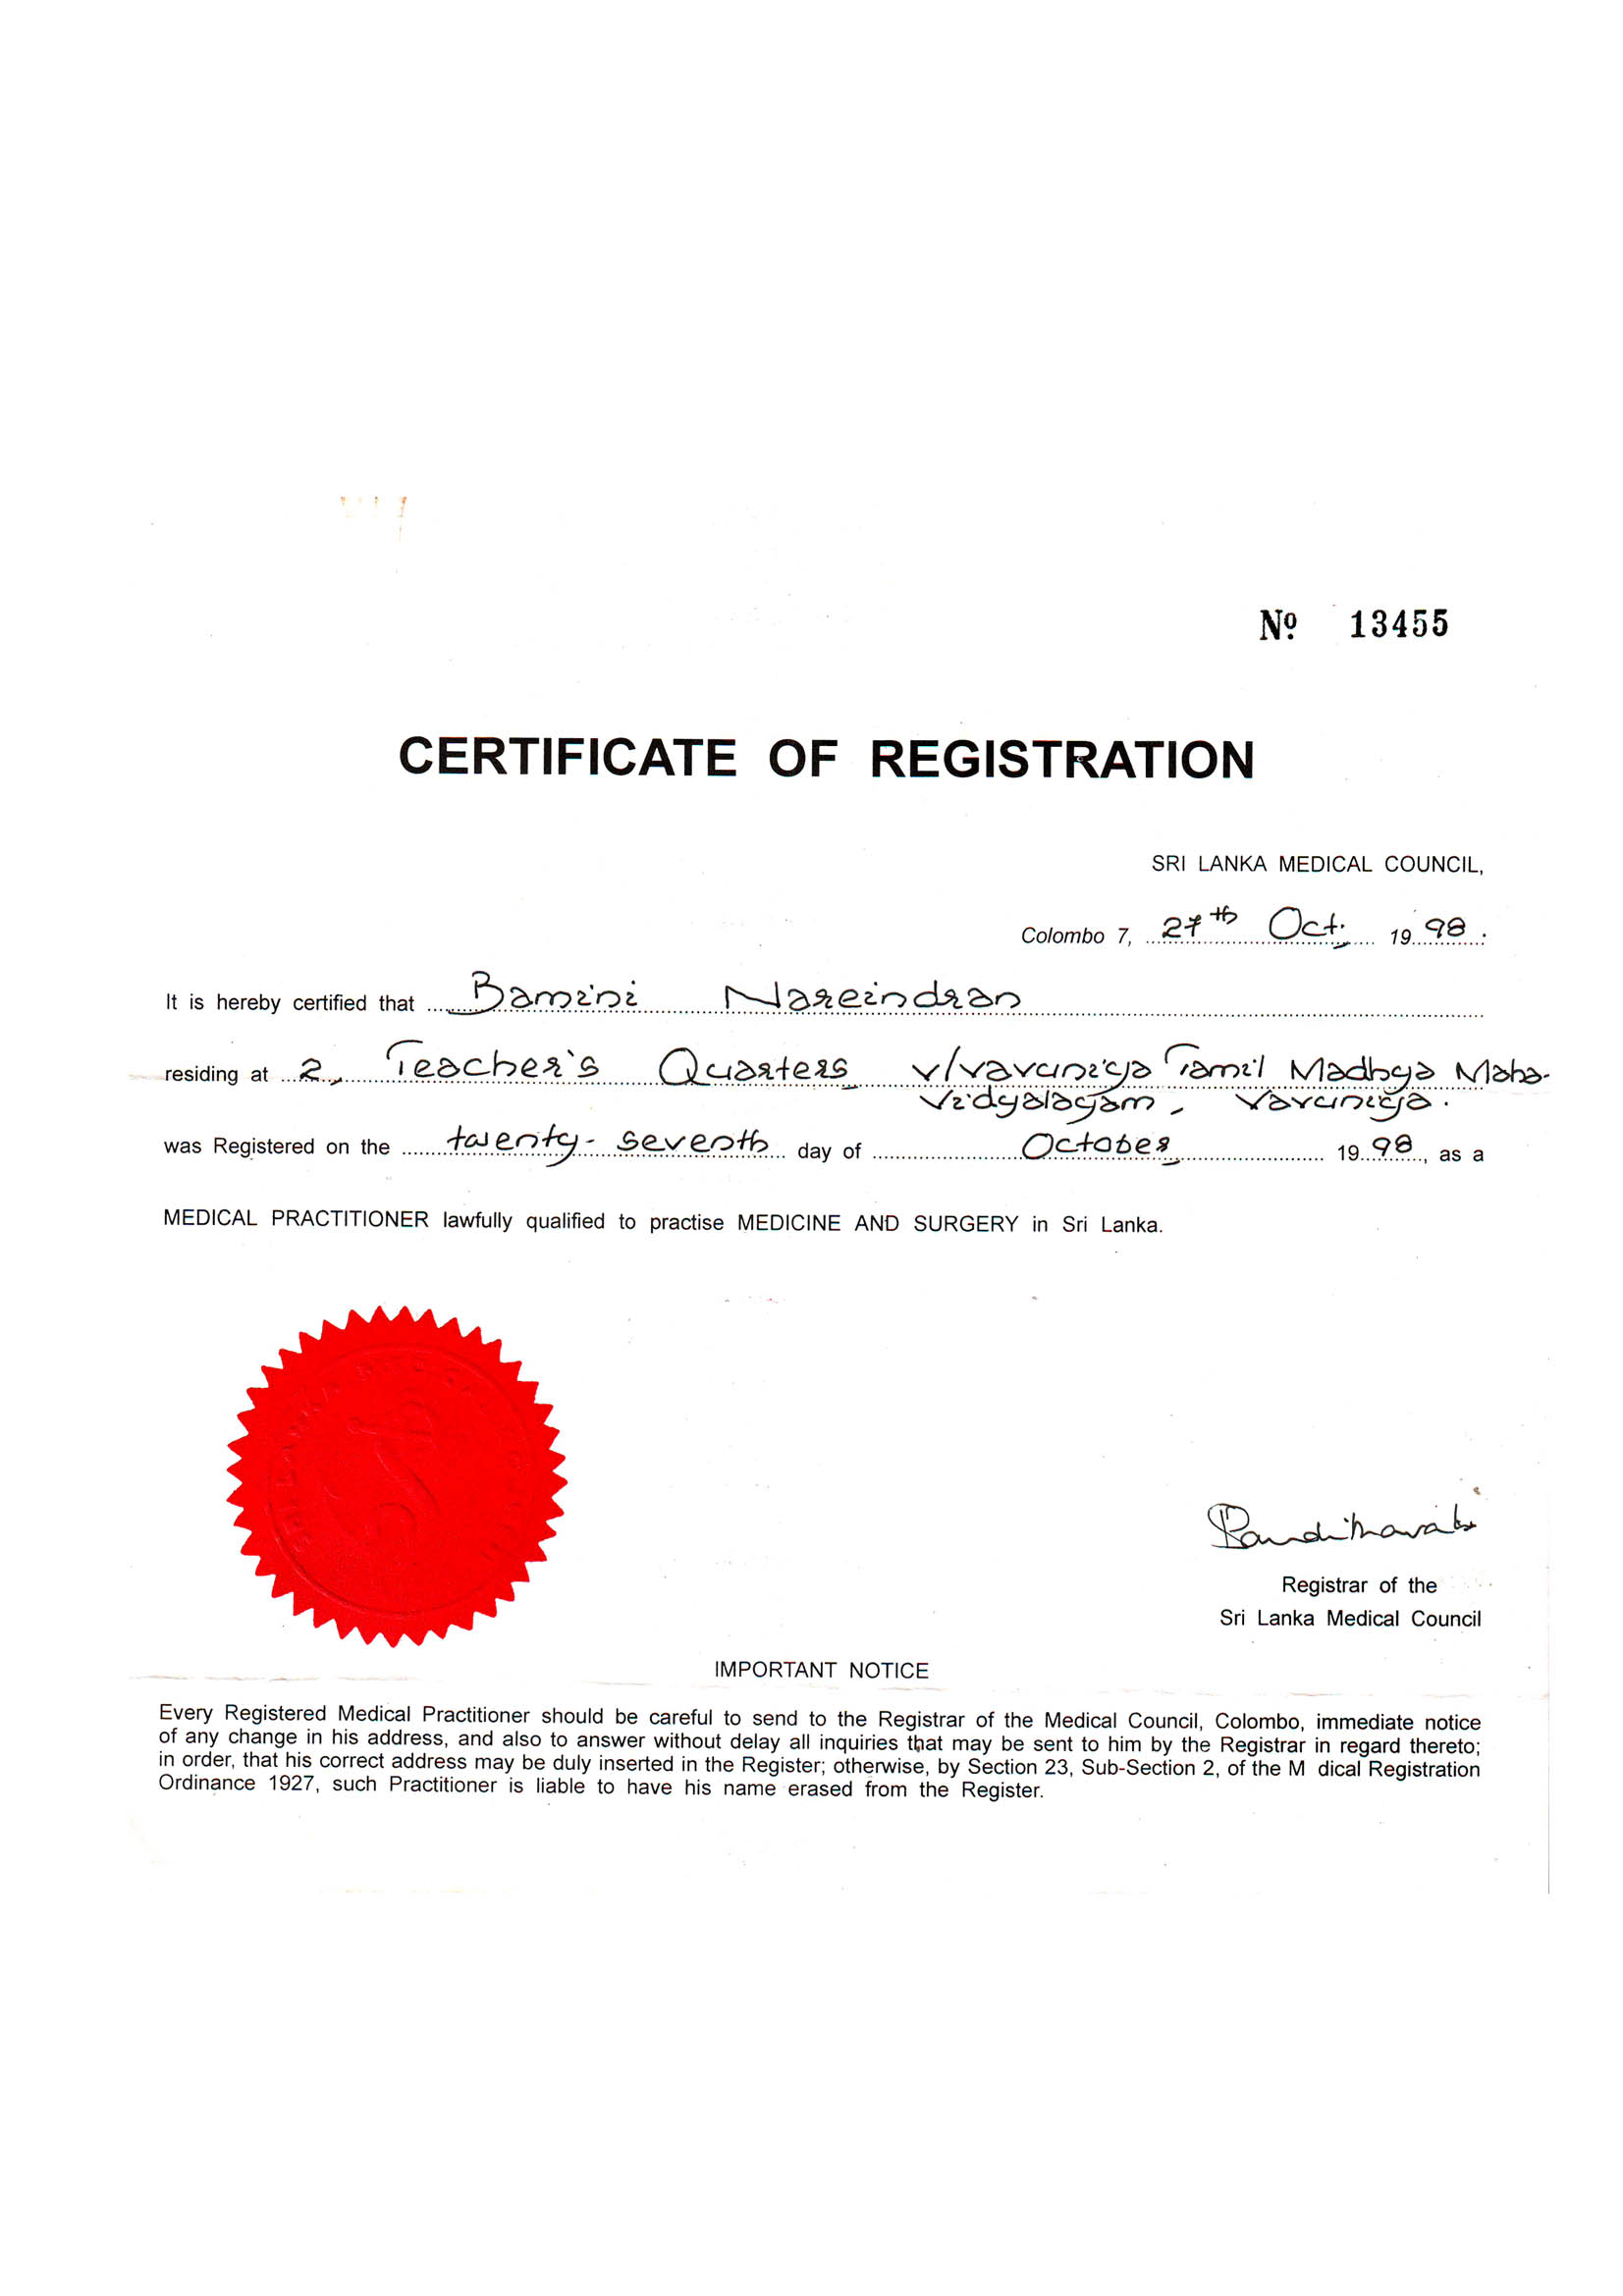 Nº 13455
CERTIFICATE OF REGISTRATION
SRI LANKA MEDICAL COUNCIL,
Colombo 7, 27th Oct. 1998.
It is hereby certified that Bamini Nareindran
residing at 2, Teacher's Quarters V/Vavuniya Tamil Madhya Maha-
Vidyalayam, Vavuniya.
was Registered on the twenty-seventh day of October 1998, as a
MEDICAL PRACTITIONER lawfully qualified to practise MEDICINE AND SURGERY in Sri Lanka.
Registrar of the
Sri Lanka Medical Council
IMPORTANT NOTICE
Every Registered Medical Practitioner should be careful to send to the Registrar of the Medical Council, Colombo, immediate notice
of any change in his address, and also to answer without delay all inquiries that may be sent to him by the Registrar in regard thereto;
in order, that his correct address may be duly inserted in the Register; otherwise, by Section 23, Sub-Section 2, of the M dical Registration
Ordinance 1927, such Practitioner is liable to have his name erased from the Register.